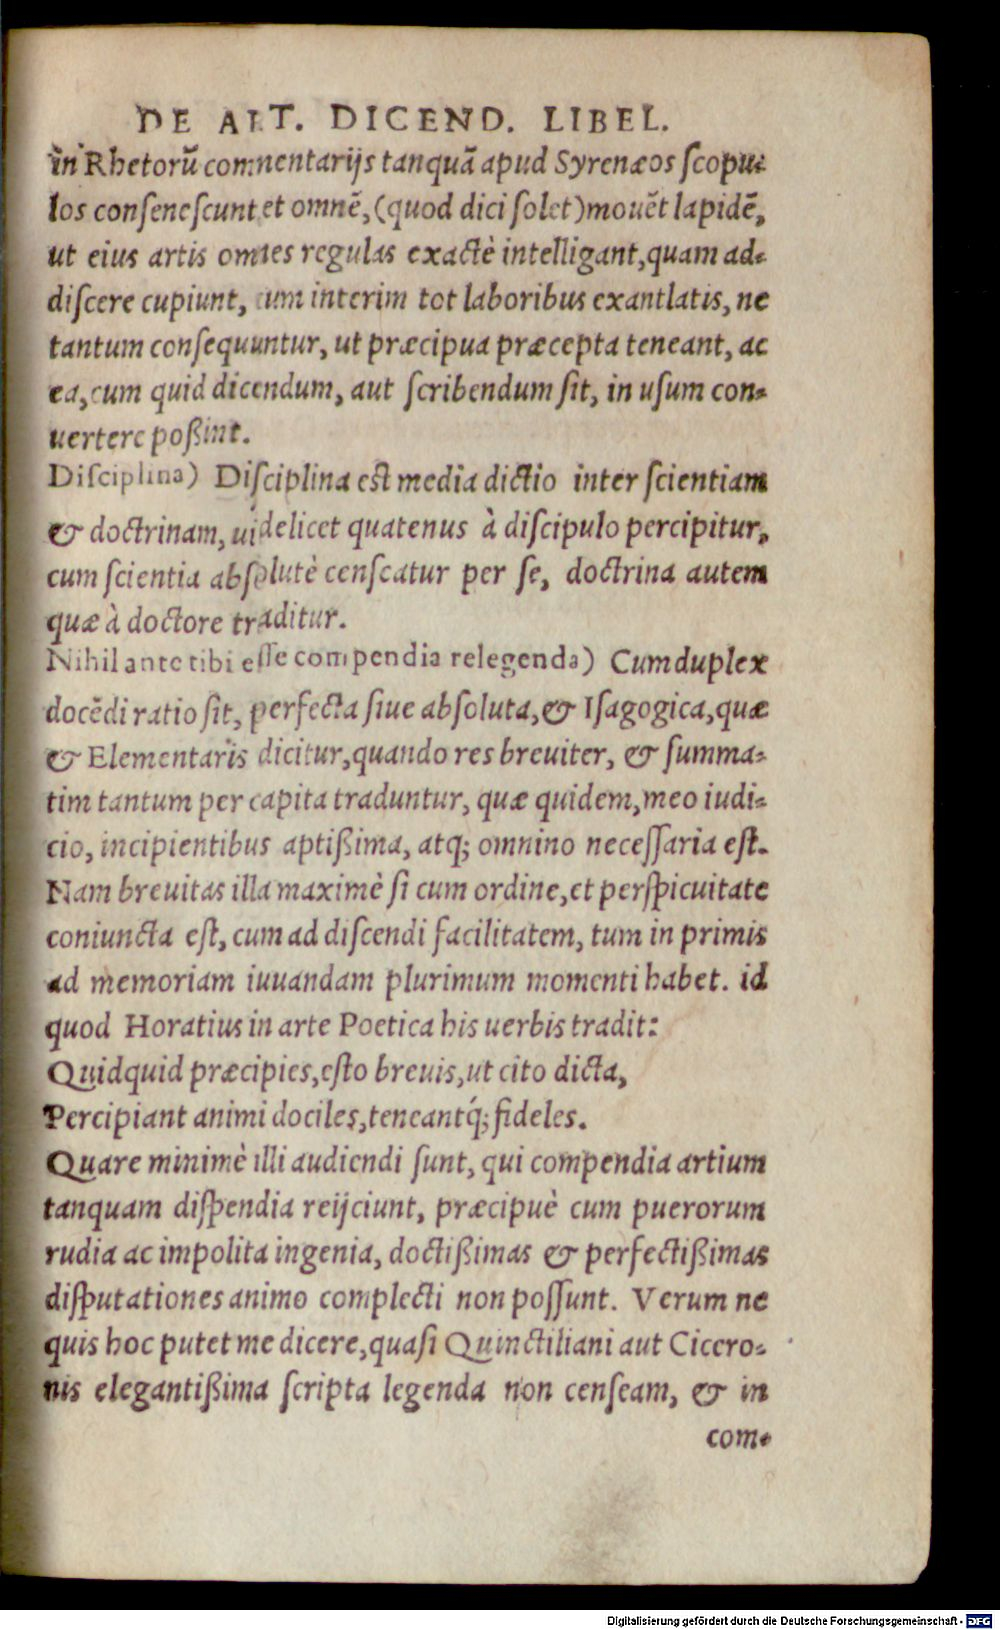 DE ART. DICEND. LIBEL.
in Rhetorũ commentarijs tanquã apud Syrenæos scopu-
los consenescunt et omnẽ, (quod dici solet) mouẽt lapidẽ,
ut eius artis omnes regulas exactè intelligant, quam ad-
discere cupiunt, cum interim tot laboribus exantlatis, ne
tantum consequuntur, ut præcipua præcepta teneant, ac
ea, cum quid dicendum, aut scribendum sit, in usum con-
uertere poßint.
Disciplina) Disciplina est media dictio inter scientiam
& doctrinam, uidelicet quatenus à discipulo percipitur,
cum scientia absolutè censeatur per se, doctrina autem
quæ à doctore traditur.
Nihil ante tibi esse compendia relegenda) Cum duplex
docẽdi ratio sit, perfecta siue absoluta, & Isagogica, quæ
& Elementaris dicitur, quando res breuiter, & summa-
tim tantum per capita traduntur, quæ quidem, meo iudi-
cio, incipientibus aptißima, atq; omnino necessaria est.
Nam breuitas illa maximè si cum ordine, et perspicuitate
coniuncta est, cum ad discendi facilitatem, tum in primis
ad memoriam iuuandam plurimum momenti habet. id
quod Horatius in arte Poetica his uerbis tradit:
Quidquid præcipies, esto breuis, ut cito dicta,
Percipiant animi dociles, teneantq́; fideles.
Quare minimè illi audiendi sunt, qui compendia artium
tanquam dispendia reijciunt, præcipuè cum puerorum
rudia ac impolita ingenia, doctißimas & perfectißimas
disputationes animo complecti non possunt. Verum ne
quis hoc putet me dicere, quasi Quinctiliani aut Cicero-
nis elegantißima scripta legenda non censeam, & in
com-
Digitalisierung gefördert durch die Deutsche Forschungsgemeinschaft - DFG